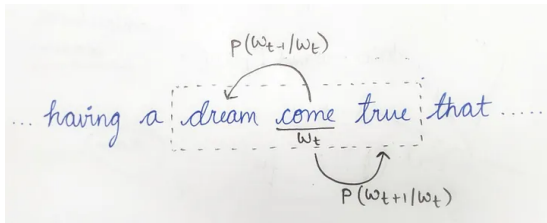 P(ωt-1/ωt)
... having a dream come true that .....
ωt
P(ωt+1/ωt)